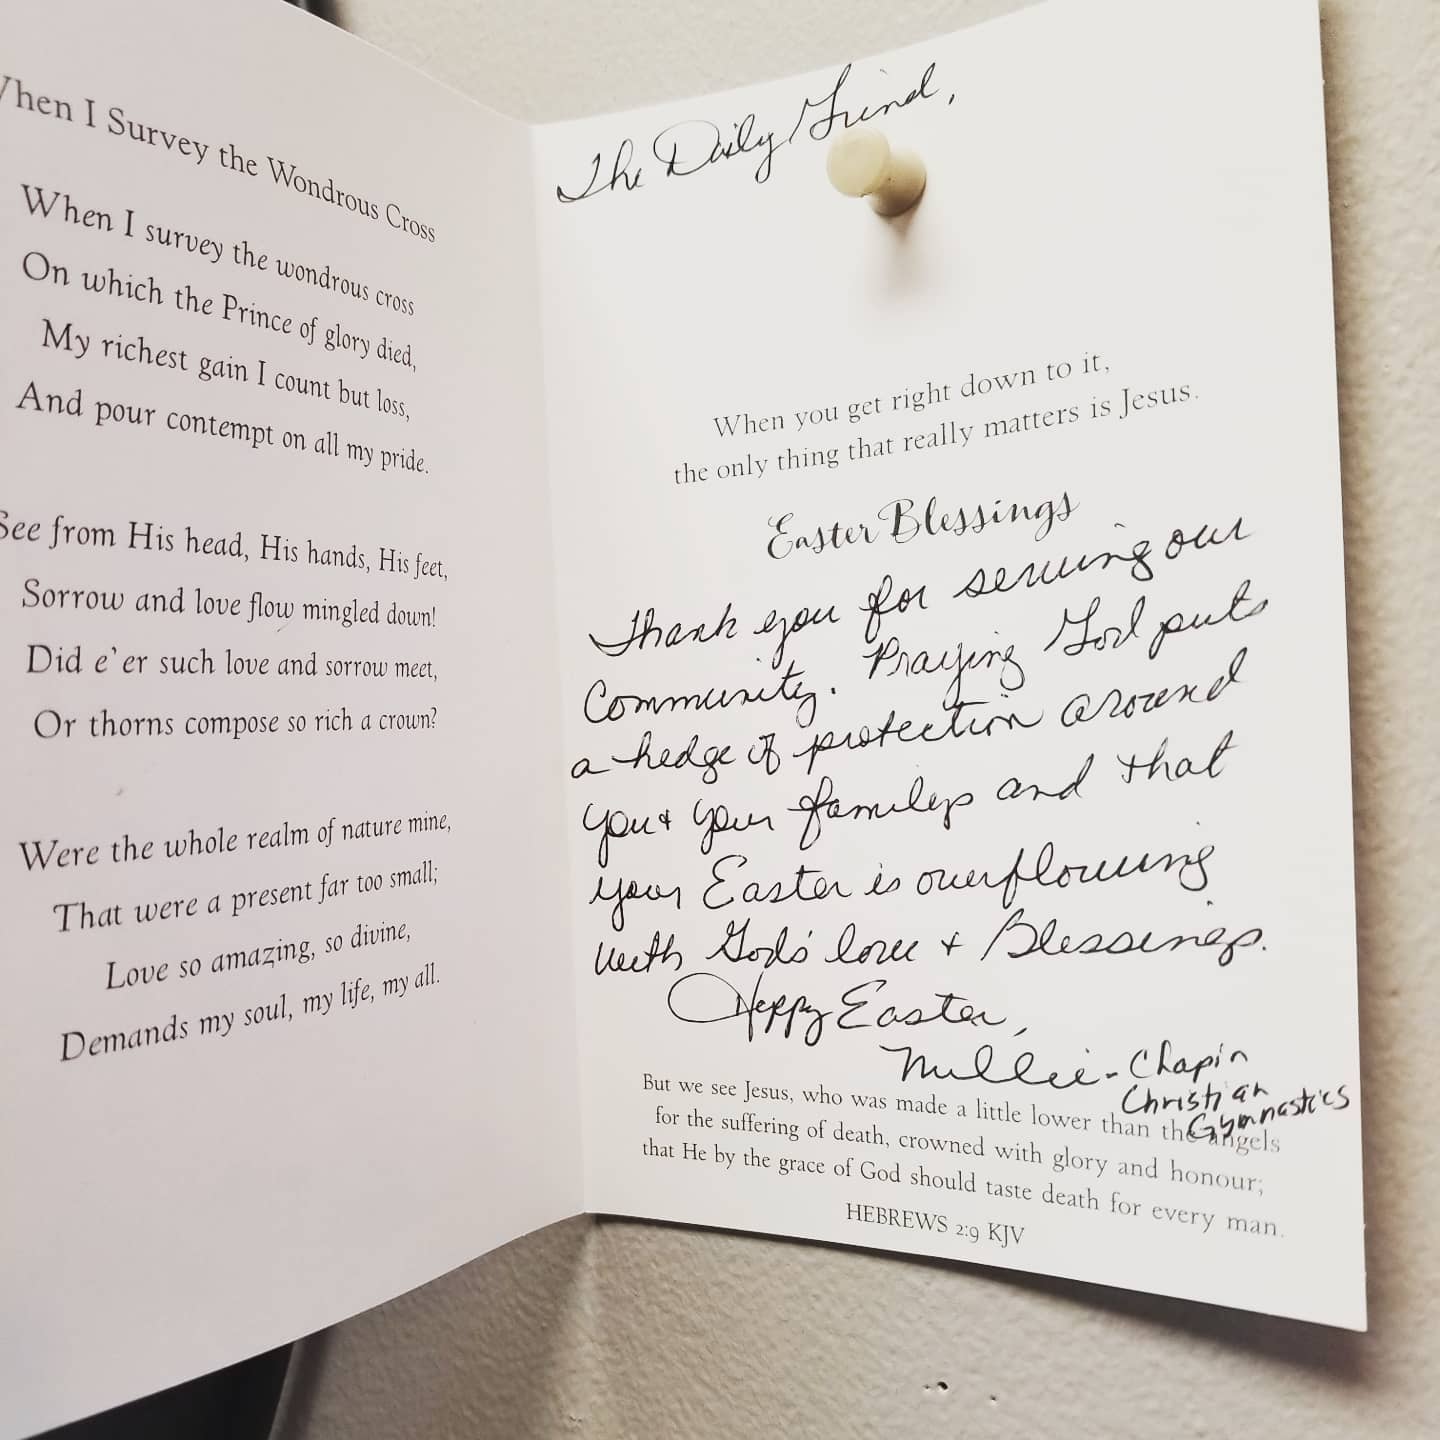 When I Survey the Wondrous Cross
When I survey the wondrous cross
On which the Prince of glory died,
My richest gain I count but loss,
And pour contempt on all my pride.
See from His head, His hands, His feet,
Sorrow and love flow mingled down!
Did e'er such love and sorrow meet,
Or thorns compose so rich a crown?
Were the whole realm of nature mine,
That were a present far too small;
Love so amazing, so divine,
Demands my soul, my life, my all.
The Daily Grind,
When you get right down to it,
the only thing that really matters is Jesus.
Easter Blessings
Thank you for serving our
Community. Praying God puts
a hedge of protection around
you + your family and that
your Easter is overflowing
with God's love + Blessings.
Happy Easter,
Millie - Chapin
Christian
Gymnastics
But we see Jesus, who was made a little lower than the angels
for the suffering of death, crowned with glory and honour;
that He by the grace of God should taste death for every man.
HEBREWS 2:9 KJV